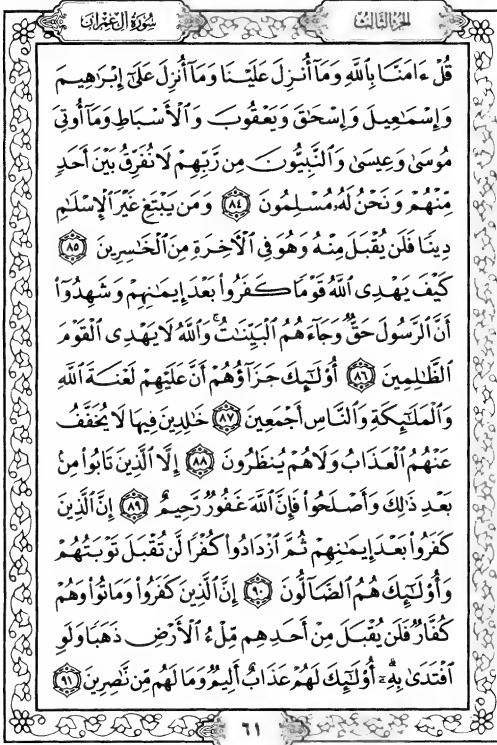 سُورَةُ آلِ عِمْرَان
الجُزْءُ الثَّالِث
قُلْ ءَامَنَّا بِٱللَّهِ وَمَآ أُنزِلَ عَلَيْنَا وَمَآ أُنزِلَ عَلَىٰٓ إِبْرَٰهِيمَ
وَإِسْمَٰعِيلَ وَإِسْحَٰقَ وَيَعْقُوبَ وَٱلْأَسْبَاطِ وَمَآ أُوتِىَ
مُوسَىٰ وَعِيسَىٰ وَٱلنَّبِيُّونَ مِن رَّبِّهِمْ لَا نُفَرِّقُ بَيْنَ أَحَدٍ
مِّنْهُمْ وَنَحْنُ لَهُۥ مُسْلِمُونَ ٨٤ وَمَن يَبْتَغِ غَيْرَ ٱلْإِسْلَٰمِ
دِينًا فَلَن يُقْبَلَ مِنْهُ وَهُوَ فِى ٱلْأَخِرَةِ مِنَ ٱلْخَٰسِرِينَ ٨٥
كَيْفَ يَهْدِى ٱللَّهُ قَوْمًا كَفَرُوا۟ بَعْدَ إِيمَٰنِهِمْ وَشَهِدُوٓا۟
أَنَّ ٱلرَّسُولَ حَقٌّ وَجَآءَهُمُ ٱلْبَيِّنَٰتُ ۚ وَٱللَّهُ لَا يَهْدِى ٱلْقَوْمَ
ٱلظَّٰلِمِينَ ٨٦ أُو۟لَٰٓئِكَ جَزَآؤُهُمْ أَنَّ عَلَيْهِمْ لَعْنَةَ ٱللَّهِ
وَٱلْمَلَٰٓئِكَةِ وَٱلنَّاسِ أَجْمَعِينَ ٨٧ خَٰلِدِينَ فِيهَا لَا يُخَفَّفُ
عَنْهُمُ ٱلْعَذَابُ وَلَا هُمْ يُنظَرُونَ ٨٨ إِلَّا ٱلَّذِينَ تَابُوا۟ مِنۢ
بَعْدِ ذَٰلِكَ وَأَصْلَحُوا۟ فَإِنَّ ٱللَّهَ غَفُورٌ رَّحِيمٌ ٨٩ إِنَّ ٱلَّذِينَ
كَفَرُوا۟ بَعْدَ إِيمَٰنِهِمْ ثُمَّ ٱزْدَادُوا۟ كُفْرًا لَّن تُقْبَلَ تَوْبَتُهُمْ
وَأُو۟لَٰٓئِكَ هُمُ ٱلضَّآلُّونَ ٩٠ إِنَّ ٱلَّذِينَ كَفَرُوا۟ وَمَاتُوا۟ وَهُمْ
كُفَّارٌ فَلَن يُقْبَلَ مِنْ أَحَدِهِم مِّلْءُ ٱلْأَرْضِ ذَهَبًا وَلَوِ
ٱفْتَدَىٰ بِهِۦٓ ۗ أُو۟لَٰٓئِكَ لَهُمْ عَذَابٌ أَلِيمٌ وَمَا لَهُم مِّن نَّٰصِرِينَ ٩١
٦١